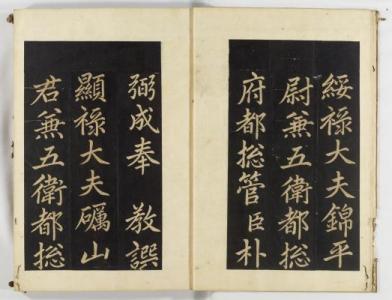 綏祿大夫錦平
尉兼五衛都摠
府都摠管臣朴
弼成奉 敎譔
顯祿大夫礪山
君兼五衛都摠